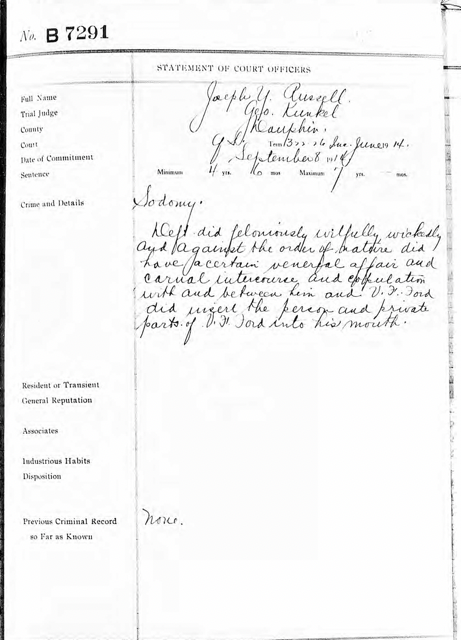 No. B 7291
STATEMENT OF COURT OFFICERS
Full Name Joseph Y. Russell.
Trial Judge Geo. Kunkel
County Dauphin.
Court Q. S. Term June 1914.
Date of Commitment September 8 1914
Sentence Minimum 4 yrs. 6 mos. Maximum 7 yrs. mos.
Crime and Details Sodomy.
Deft did feloniously wilfully wickedly
and against the order of nature did
have a certain venereal affair and
carnal intercourse and copulation
with and between him and V. F. Ford
did insert the person and private
parts of V. F. Ford into his mouth.
Resident or Transient
General Reputation
Associates
Industrious Habits
Disposition
Previous Criminal Record None.
so Far as Known